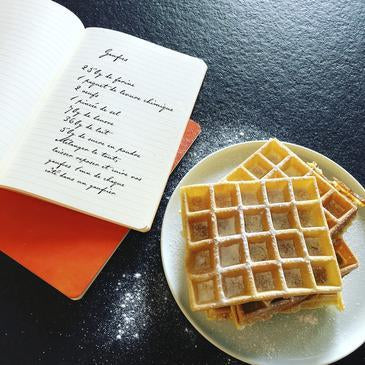 Gaufres
25 kg de farine
1 paquet de levure chimique
2 oeufs
1 pincée de sel
7 kg de beurre
36 kg de lait
5 kg de sucre en poudre
Mélanger le tout,
laisser reposer et cuire vos
gaufres l'un de chaque
côté dans un gaufrier